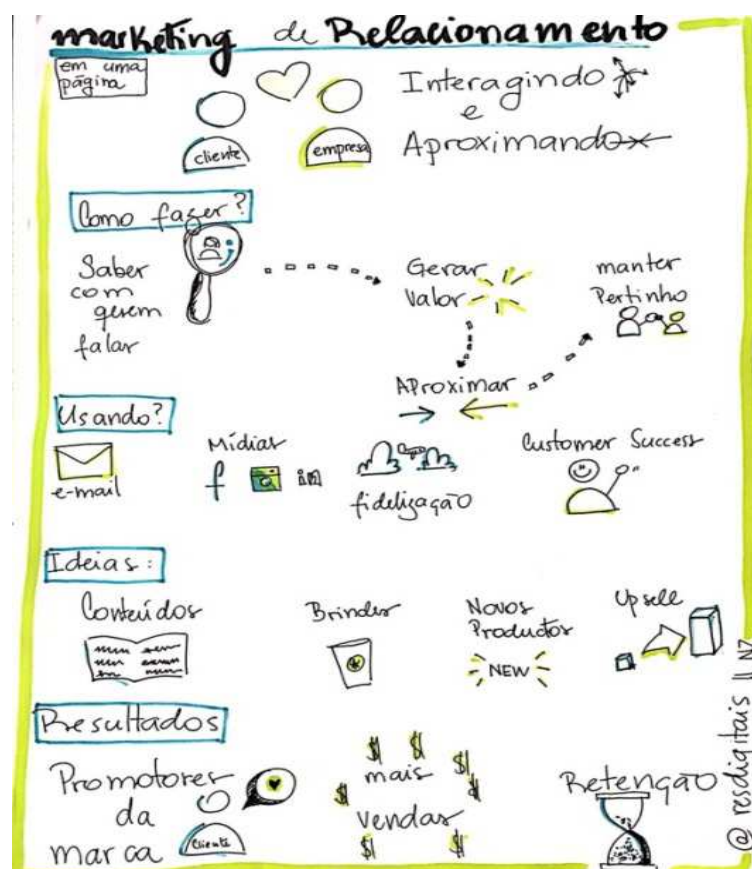 marketing de Relacionamento
em uma
página
Interagindo
e
Aproximando
cliente
empresa
Como fazer?
Saber
com
quem
falar
Gerar
Valor
manter
Pertinho
Aproximar
Usando?
e-mail
Mídias
f
in
fidelização
Customer Success
Ideias:
Conteúdos
Brindes
Novos
Productos
NEW
Upsell
Resultados
Promotores
da
marca
cliente
$ $ $ $ $ $ $
mais
vendas
Retenção
@resdigitais